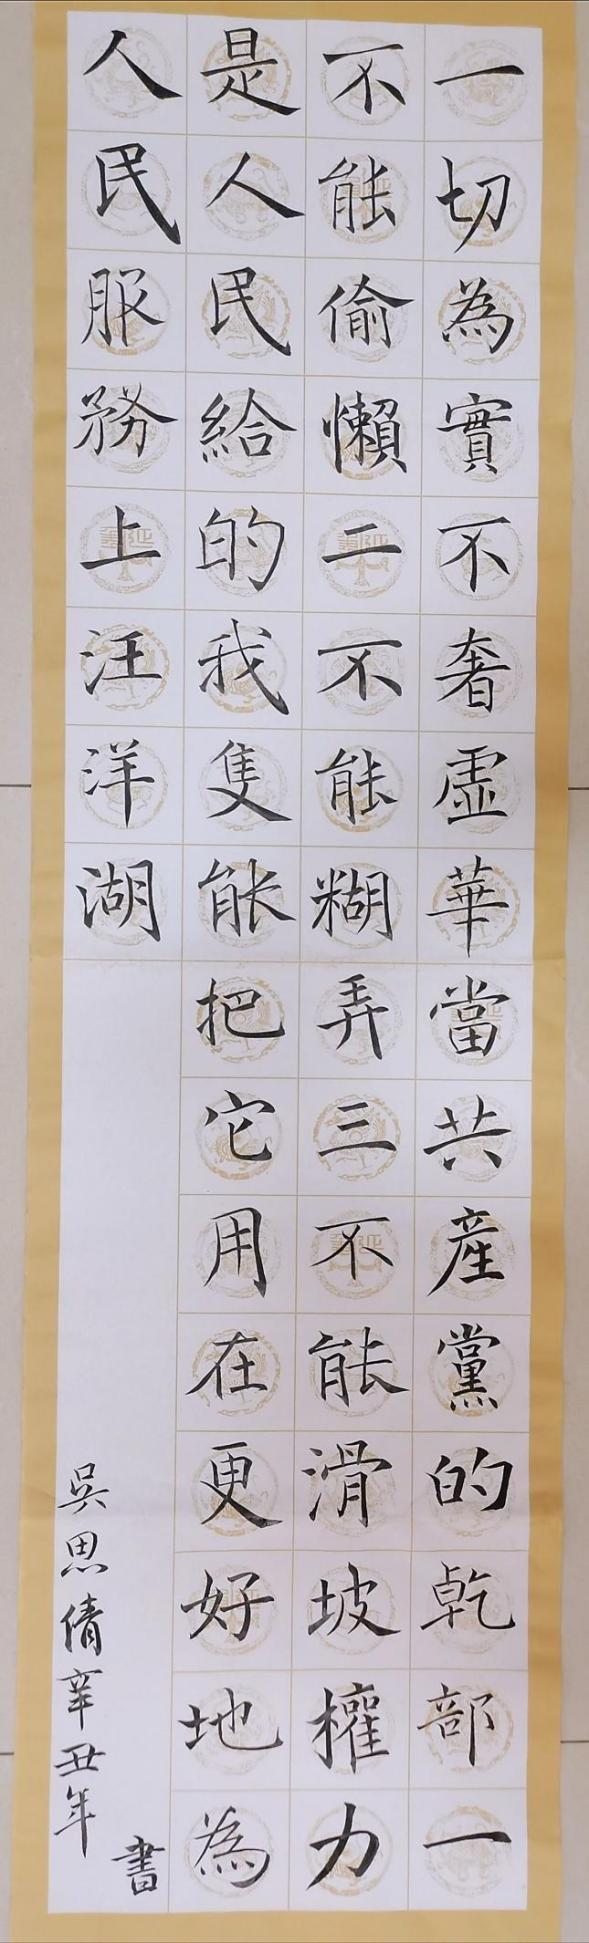 一切為實不奢虛華當共產黨的乾部一
不能偷懶二不能糊弄三不能滑坡權力
是人民給的我隻能把它用在更好地為
人民服務上汪洋湖
吳思倩辛丑年
書